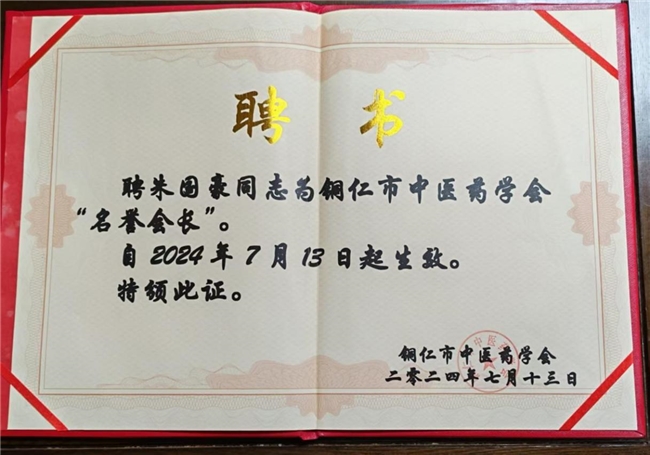 聘 书
聘朱国豪同志为铜仁市中医药学会
“名誉会长”。
自2024年7月13日起生效。
特颁此证。
铜仁市中医药学会
二零二四年七月十三日